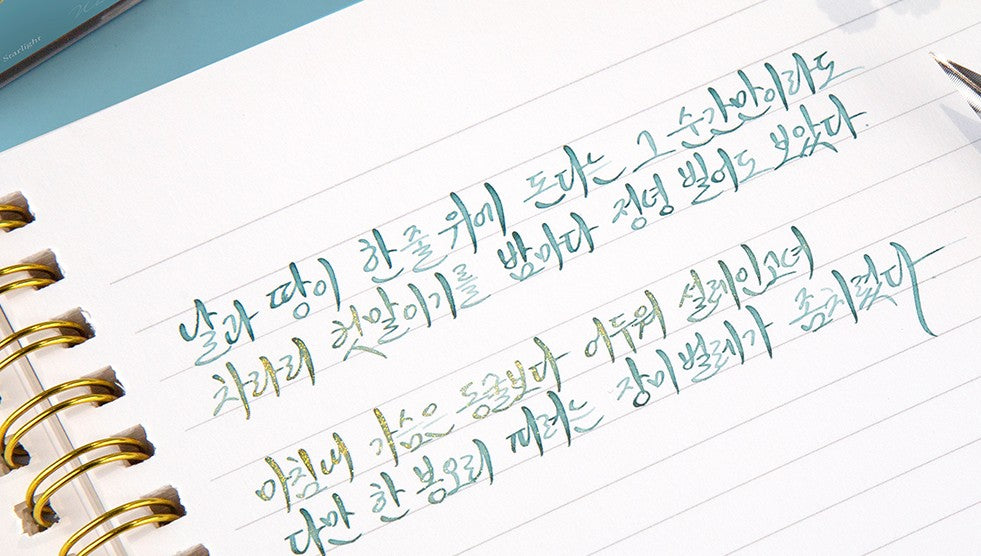 Starlight
날과 땅이 한 줄 위에 도다는 그 순간만이라도
차라리 헛말이기를 밤마다 정녕 빌어도 보았다
마침내 가슴은 동굴보다 어두워 설레인고녀
다만 한 봉오리 피려는 장미 벌레가 좀치렸다